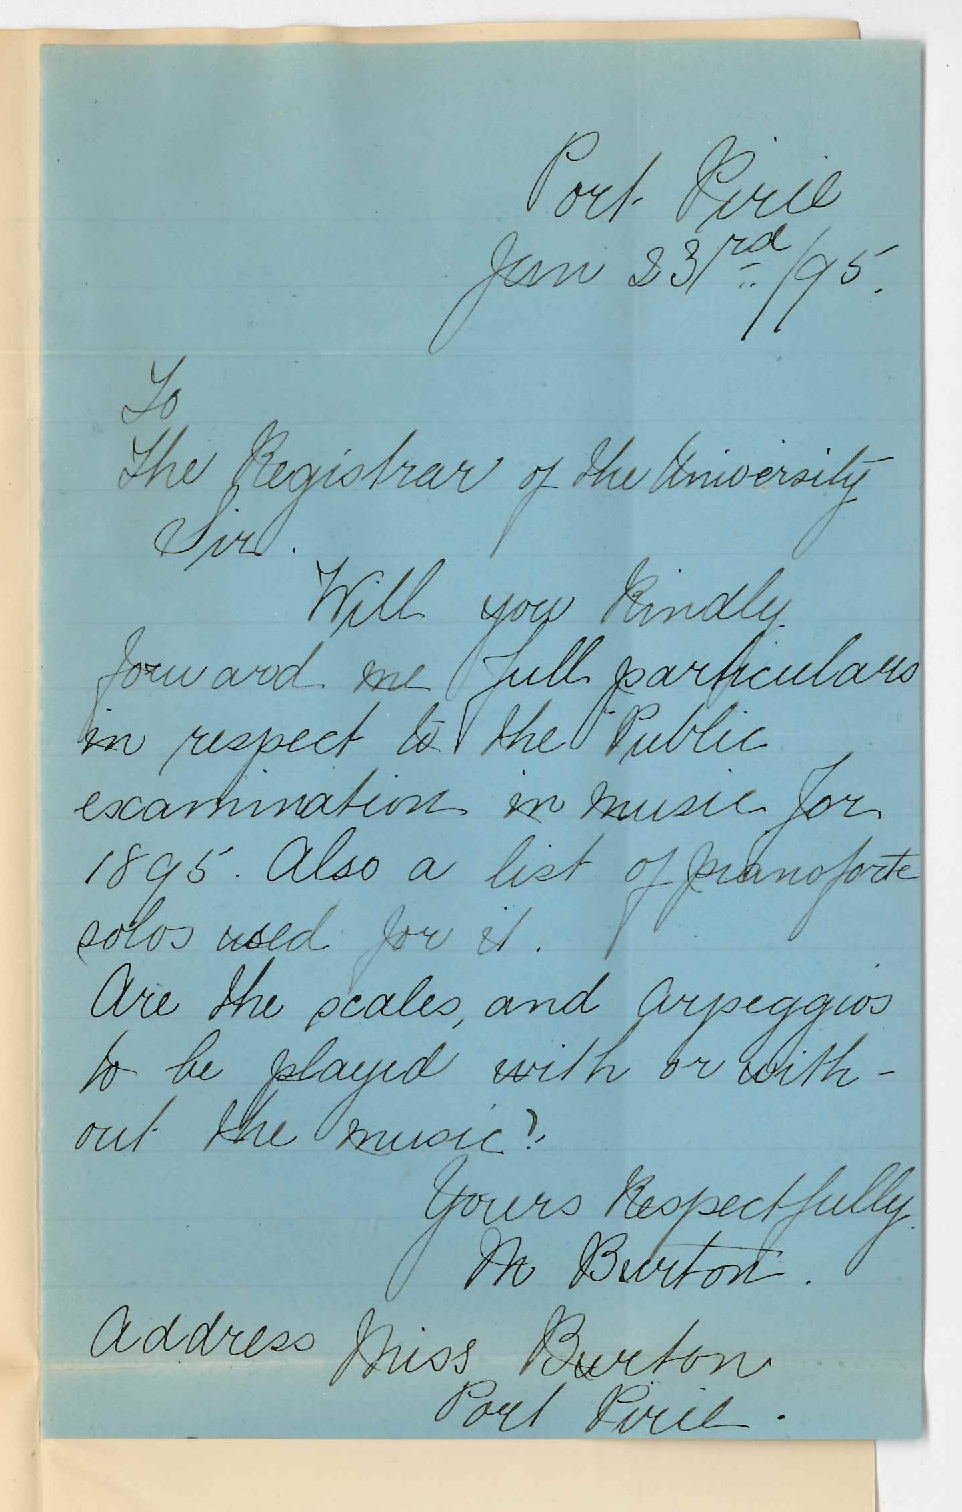 Port Pirie
Jan 23rd/95.
To
The Registrar of the University
Sir.
Will you kindly
forward me full particulars
in respect to the Public
examination in music for
1895. Also a list of pianoforte
solos used for it.
Are the scales, and arpeggios
to be played with or with-
out the music?
Yours Respectfully
M Burton.
Address Miss Burton
Port Pirie.